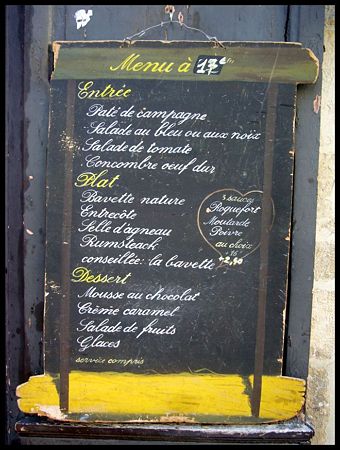 Menu à 13€
Entrée
Paté de campagne
Salade au bleu ou aux noix
Salade de tomate
Concombre oeuf dur
Plat
Bavette nature
Entrecôte
Selle d'agneau
Rumsteack
conseillée: la bavette
3 sauces
Roquefort
Moutarde
Poivre
au choix
Dessert
Mousse au chocolat
Crème caramel
Salade de fruits
Glaces
service compris